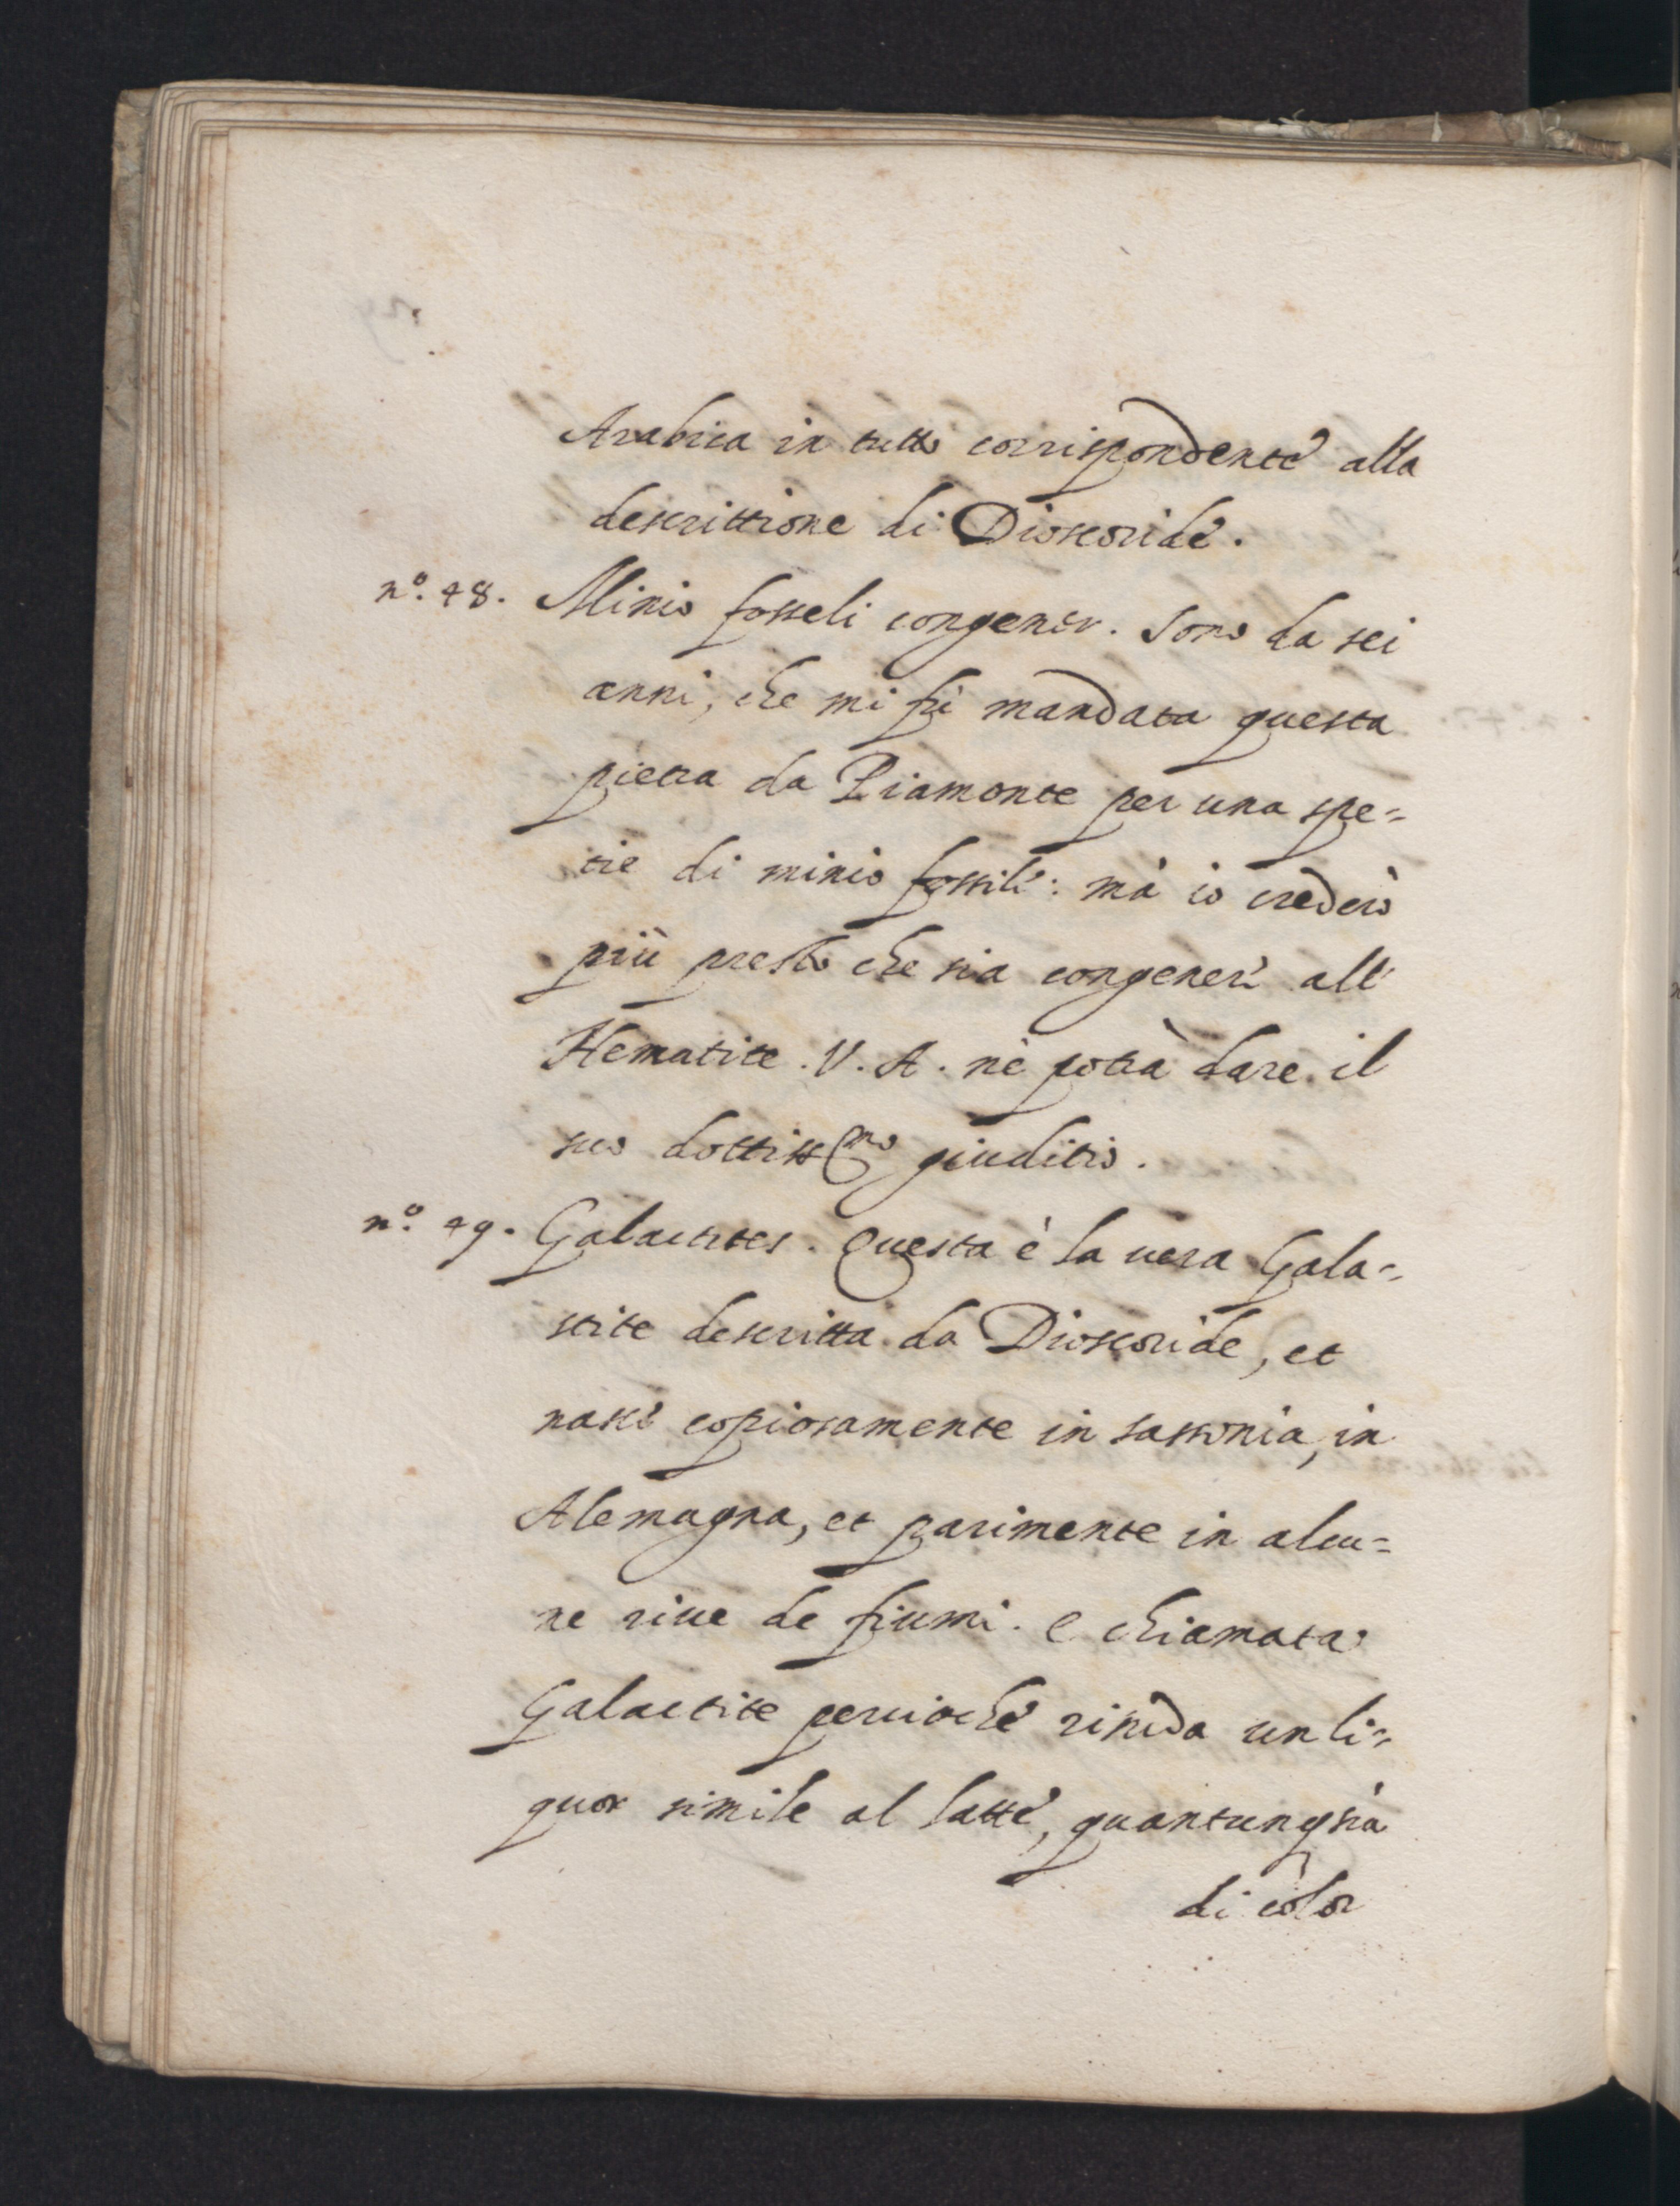 Arabica in tutto corrispondente alla
descrittione di Dioscoride.
nº. 48. Minio fosseli congener. Sono da sei
anni, che mi fù mandata questa
pietra da Piamonte per una spe=
tie di minio fossile: mà io crederò
più presto che sia congenere all'
Hematite. V. A. nè potrà dare il
suo dottissmo giuditio.
nº. 49. Galactites. Questa è la uera Gala=
ctite descritta da Dioscoride, et
nasce copiosamente in sassonia, in
Alemagna, et parimente in alcu=
ne riue de fiumi. è chiamata
Galactite percioche renda un li=
quor simile al latte, quantunq sia
di color